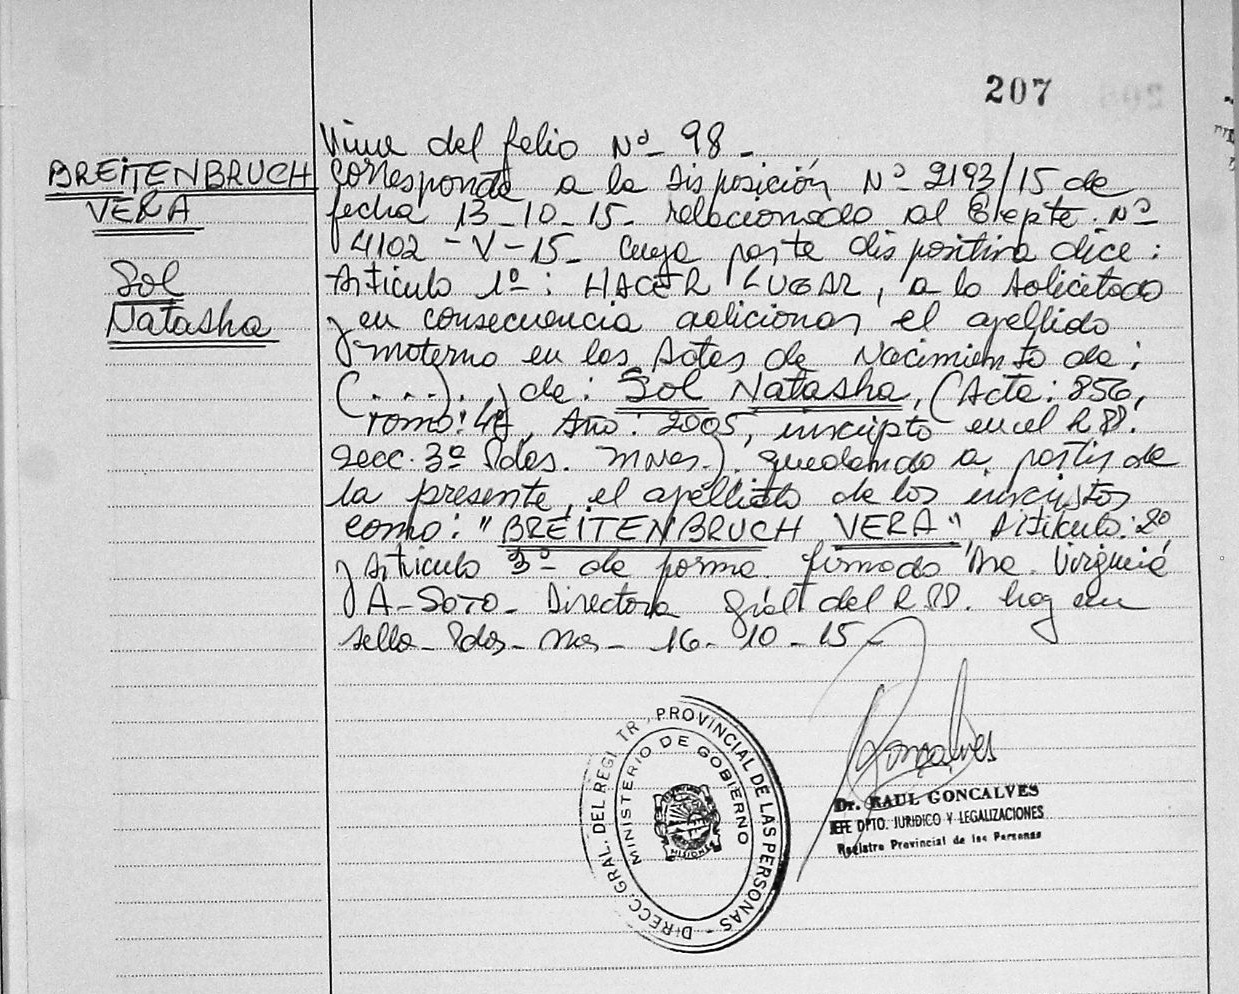 207
BREITENBRUCH
VERA
Sol
Natasha
Viene del folio Nº 98 -
Corresponde a la Disposición Nº 2193/15 de
fecha 13-10-15- relacionado al Expte. Nº
4102-V-15- cuya parte dispositiva dice:
Artículo 1º: HACER LUGAR, a lo solicitado
y en consecuencia adicionar el apellido
materno en las Actas de Nacimiento de:
(....) de: Sol Natasha, (Acta: 856,
Tomo: 4º, Año: 2005, inscripto en el R.PP.
Secc. 3º Pdas. Mnes.). quedando a partir de
la presente, el apellido de los inscriptos
como: "BREITENBRUCH VERA" Artículo: 2º
y Artículo 3º de forma. firmado Dra. Virginia
A-SOTO- Directora Gral del R.PP. hay un
sello- Pdas- Mnes- 16-10-15-
DIRECC. GRAL. DEL REGITR. PROVINCIAL DE LAS PERSONAS
MINISTERIO DE GOBIERNO
MISIONES
Goncalves
Dr. RAUL GONCALVES
JEFE DPTO. JURIDICO Y LEGALIZACIONES
Registro Provincial de las Personas